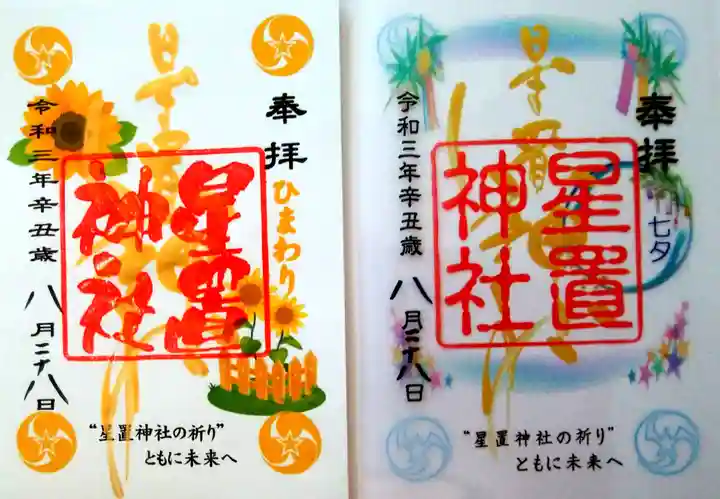 奉拝
ひまわり
星置
神社
令和三年辛丑歳
八月二十八日
“星置神社の祈り”
ともに未来へ
奉拝
七夕
星置
神社
令和三年辛丑歳
八月二十八日
“星置神社の祈り”
ともに未来へ